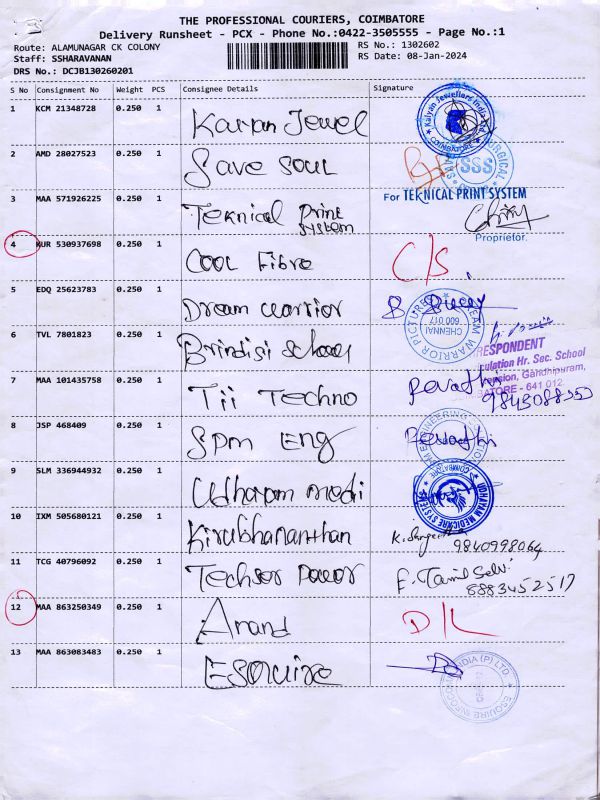 THE PROFESSIONAL COURIERS, COIMBATORE
Delivery Runsheet - PCX - Phone No.:0422-3505555 - Page No.:1
Route: ALAMUNAGAR CK COLONY RS No.: 1302602
Staff: SSHARAVANAN RS Date: 08-Jan-2024
DRS No.: DCJB130260201
S No Consignment No Weight PCS Consignee Details Signature
1 KCM 21348728 0.250 1 Kalyan Jewel Kalyan Jewellers India COIMBATORE
2 AMD 28027523 0.250 1 Save SOUL SSS SURGICAL
3 MAA 571926225 0.250 1 Teknical Print System For TEKNICAL PRINT SYSTEM
Proprietor.
4 KUR 530937698 0.250 1 COOL Fibre C/S.
5 EDQ 25623783 0.250 1 Dream warrior DREAM WARRIOR PICTURES CHENNAI 600 017
6 TVL 7801823 0.250 1 Brindisi School RESPONDENT
culation Hr. Sec. School
ension, Gandhipuram,
BATORE - 641 012
7 MAA 101435758 0.250 1 Tii Techno Revathi
8 JSP 468409 0.250 1 SPM ENG Revathi ENGINEERING
9 SLM 336944932 0.250 1 Udhayam medi UDHAYAM MEDICARE SYSTEMS COIMBATORE
10 IXM 505680121 0.250 1 Kirubhananthan K. 9840998064
11 TCG 40796092 0.250 1 Techser Power F. Tamil Selvi 8883452517
12 MAA 863250349 0.250 1 Anand D/L
13 MAA 863083483 0.250 1 ESQUIRE ESQUIRE INDIA (P) LTD